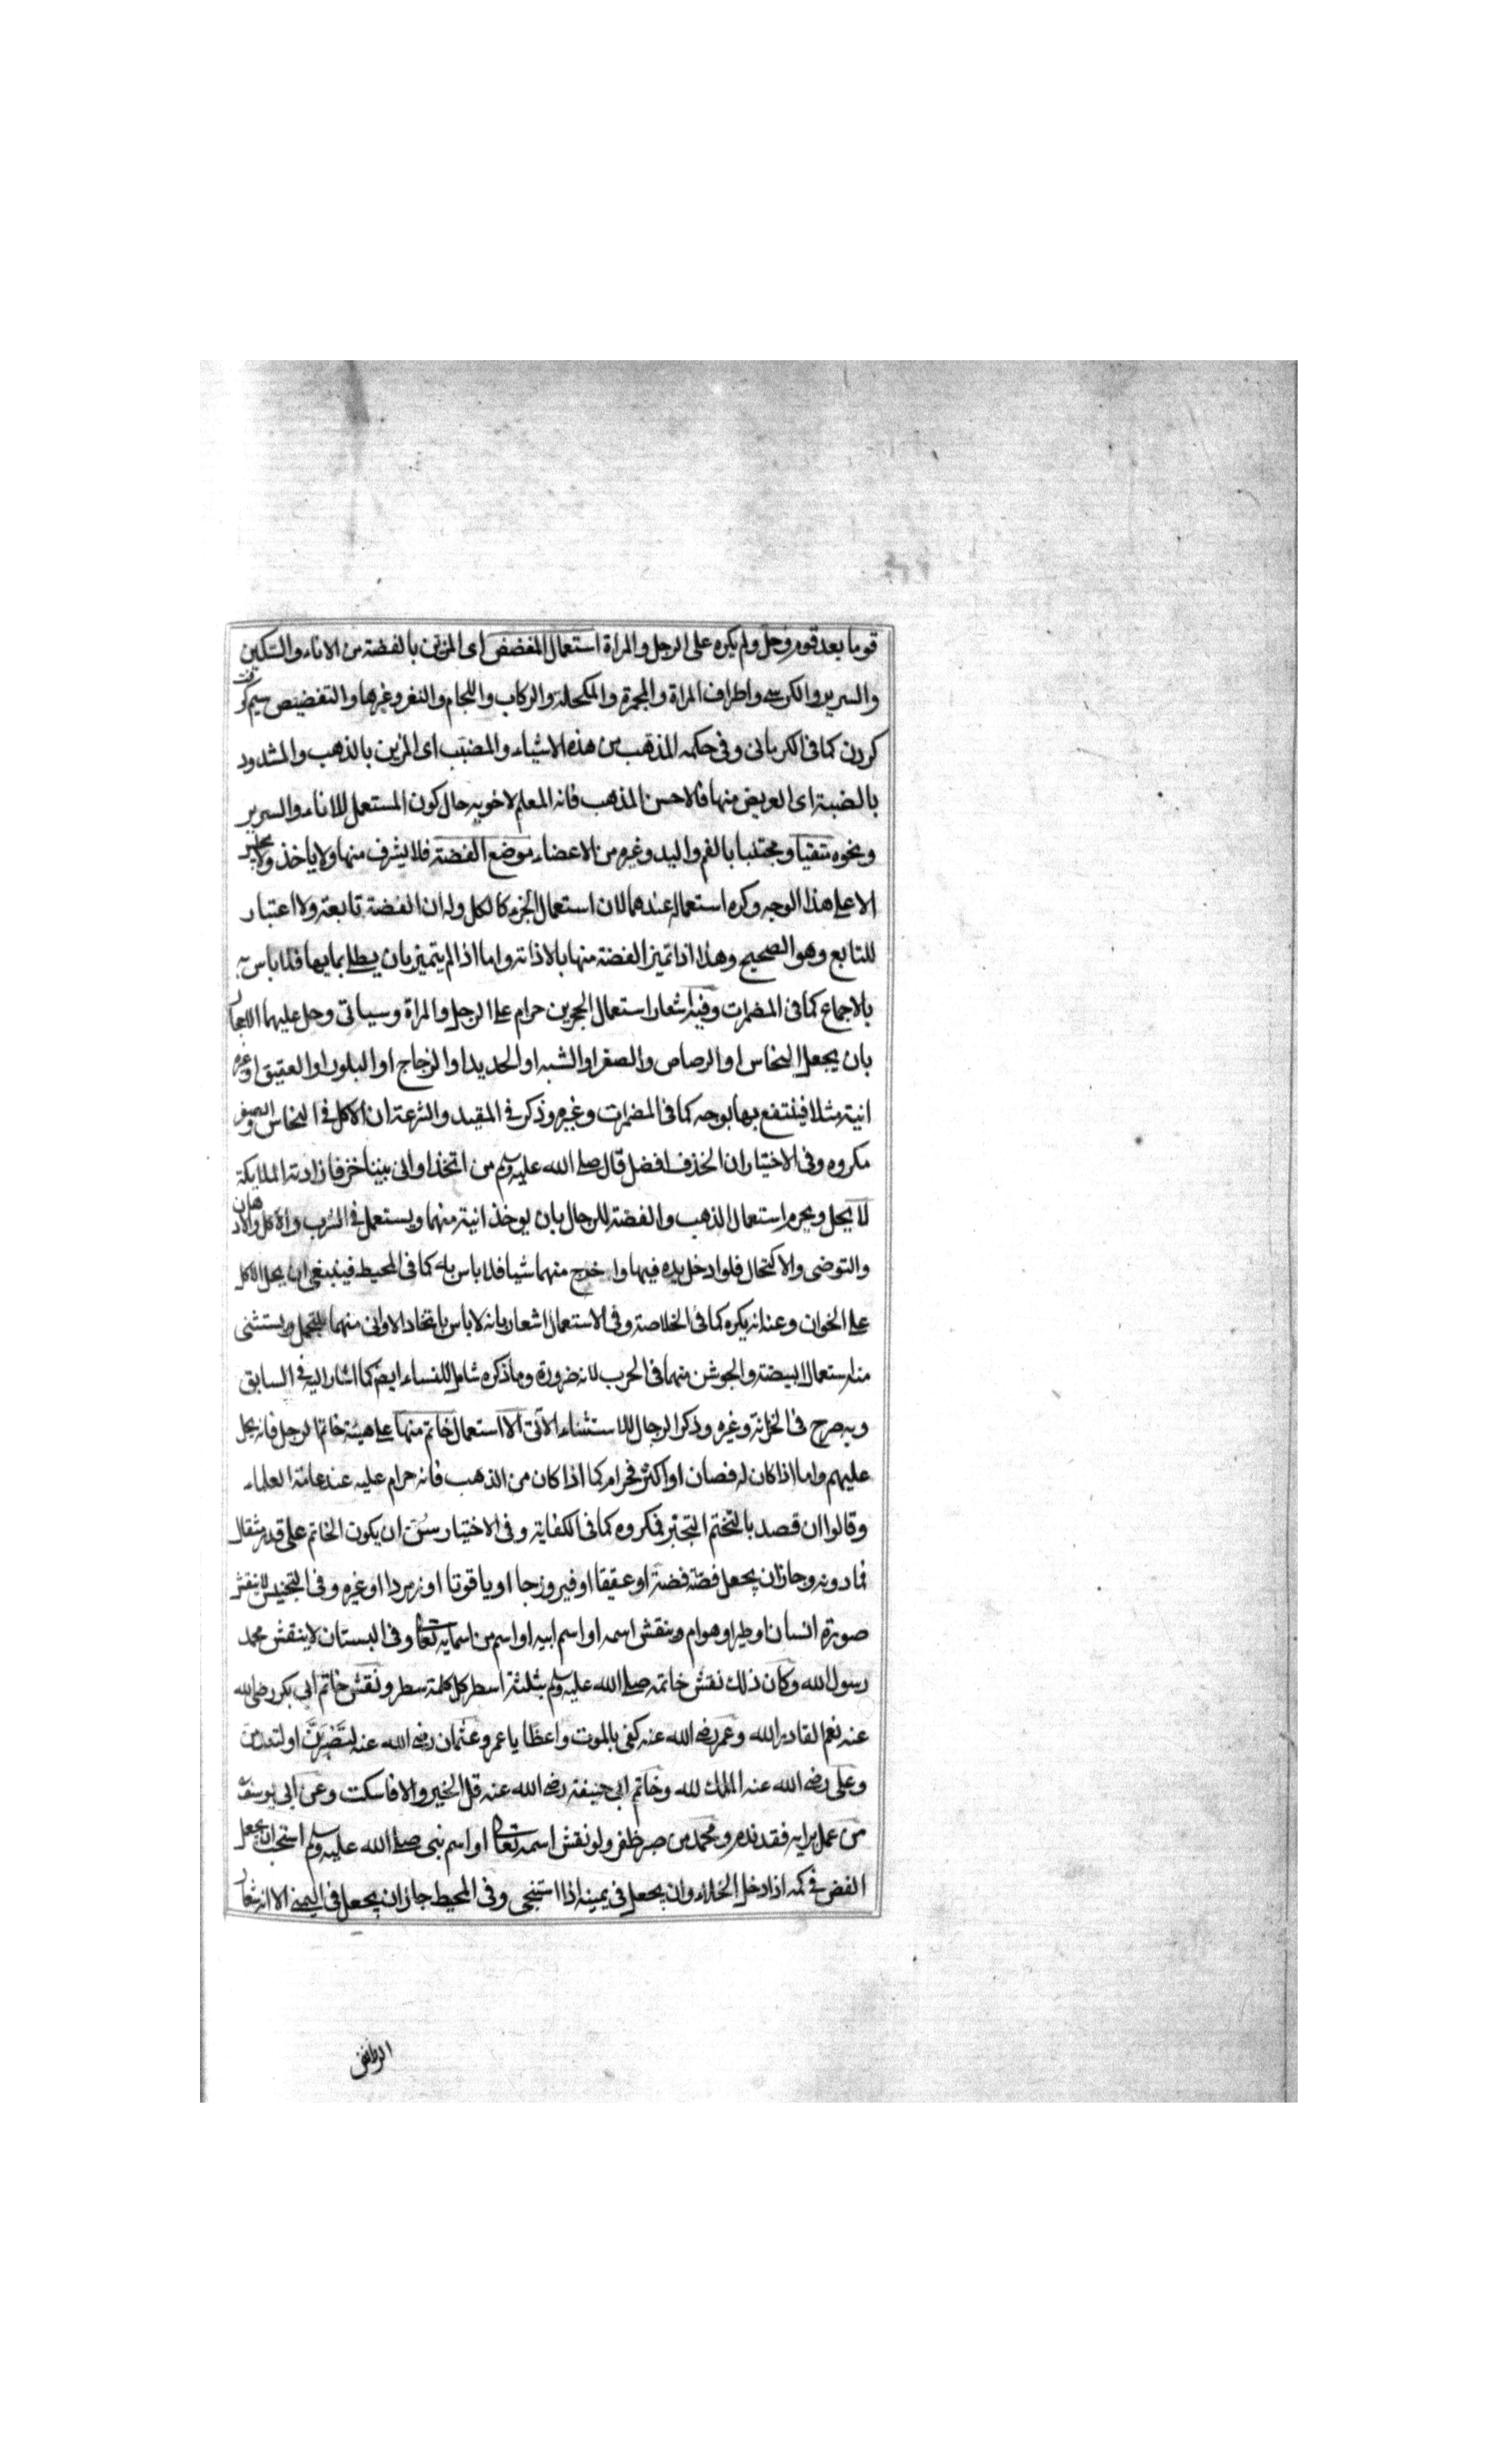 قوما بعد قوم وحل ولم يكره على الرجل والمراة استعمال المفضض اى المزين بالفضة من الاناء والسكين
والسرير والكرسى واطراف المراة والمجمرة والمكحلة والركاب واللجام والثفر وغيرها والتفضيض سيم كوفت
كردن كما فى الكرمانى وفى حكمه المذهب من هذه الاشياء والمضبب اى المزين بالذهب والمشدود
بالضبة اى العريض منها فالاحسن المذهب فانه المعلم لاخويه حال كون المستعمل للاناء والسرير
ونحوه متقيا ومجتنبا بالفم واليد وغيره من الاعضاء موضع الفضة فلا يشرف منها ولا ياخذ ولا يجلس
الا على هذا الوجه وكره استعماله عندهما لان استعمال الجزء كالكل وله ان الفضة تابعة ولا اعتبار
للتابع وهو الصحيح وهذا اذا تميز الفضة منها بالاذابة واما اذا لم يتميز بان يطلى بمايها فلا باس به
بالاجماع كما فى المضمرات وفيه اشعار استعمال الحجرين حرام على الرجل والمراة وسياتى وحل عليهما استعمال
بان يجعل النحاس او الرصاص والصفر او الشبه او الحديد او الزجاج او البلور او العقيق او غيره
انية مثلا فينتفع بها بوجه كما فى المضمرات وغيره وذكر فى المفيد والشرعة ان الاكل فى النحاس والصفر
مكروه وفى الاختيار ان الخذف افضل قال صلى الله عليه وسلم من اتخذ اوانى بيتنا خزفا زادته الملايكة
لا يحل ويحرم استعمال الذهب والفضة للرجال بان يوخذ انية منهما ويستعمل فى الشرب والاكل والادهان
والتوضى والاكتحال فلو ادخل يده فيها واخرج منهما شيا فلا باس به كما فى المحيط فينبغى ان يحل الاكل
على الخوان وعنه انه يكره كما فى الخلاصة وفى الاستعمال اشعار بانه لا باس باتخاد الاوانى منهما للتجمل ويستثنى
منه استعمال البيضة والجوشن منهما فى الحرب لانه ضرورة وما ذكره شامل للنساء ايضا كما اشار اليه فى السابق
وبه صرح فى الخزانة وغيره وذكر الرجال للاستثناء الآتى الا استعمال خاتم منها على هيئة خاتم الرجل فانه يحل
عليهم واما اذا كان له فصان او اكثر فحرام كما اذا كان من الذهب فانه حرام عليه عند عامة العلماء
وقالوا ان قصد بالتختم التجبر فمكروه كما فى الكفاية وفى الاختيار سنن ان يكون الخاتم على قدر مثقال
فما دونه وجاز ان يجعل فصه فضة او عقيقا او فيروزجا او ياقوتا او زمردا او غيره وفى التجنيس لا ينقش
صورة انسان او طير او هوام وينقش اسمه او اسم ابيه او اسم من اسمايه تعالى وفى البستان لا ينقش محمد
رسول الله وكان ذلك نقش خاتمه صلى الله عليه وسلم بثلثة اسطر كل كلمة سطر ونقش خاتم ابى بكر رضى الله
عنه نعم القادر الله وعمر رضى الله عنه كفى بالموت واعظا يا عمر وعثمان رضى الله عنه لتصبرن او لتندمن
وعلى رضى الله عنه الملك لله وخاتم ابى حنيفة رضى الله عنه قل الخير والا فاسكت وعن ابى يوسف
من عمل برايه فقد ندم ومحمد من صبر ظفر ولو نقش اسمه تعالى او اسم نبى صلى الله عليه وسلم استحب ان يجعل
الفص فى كمه اذا دخل الخلاء وان يجعل فى يمينه اذا استنجى وفى المحيط جاز ان يجعل فى اليمنى الا انه شعار
الروافض